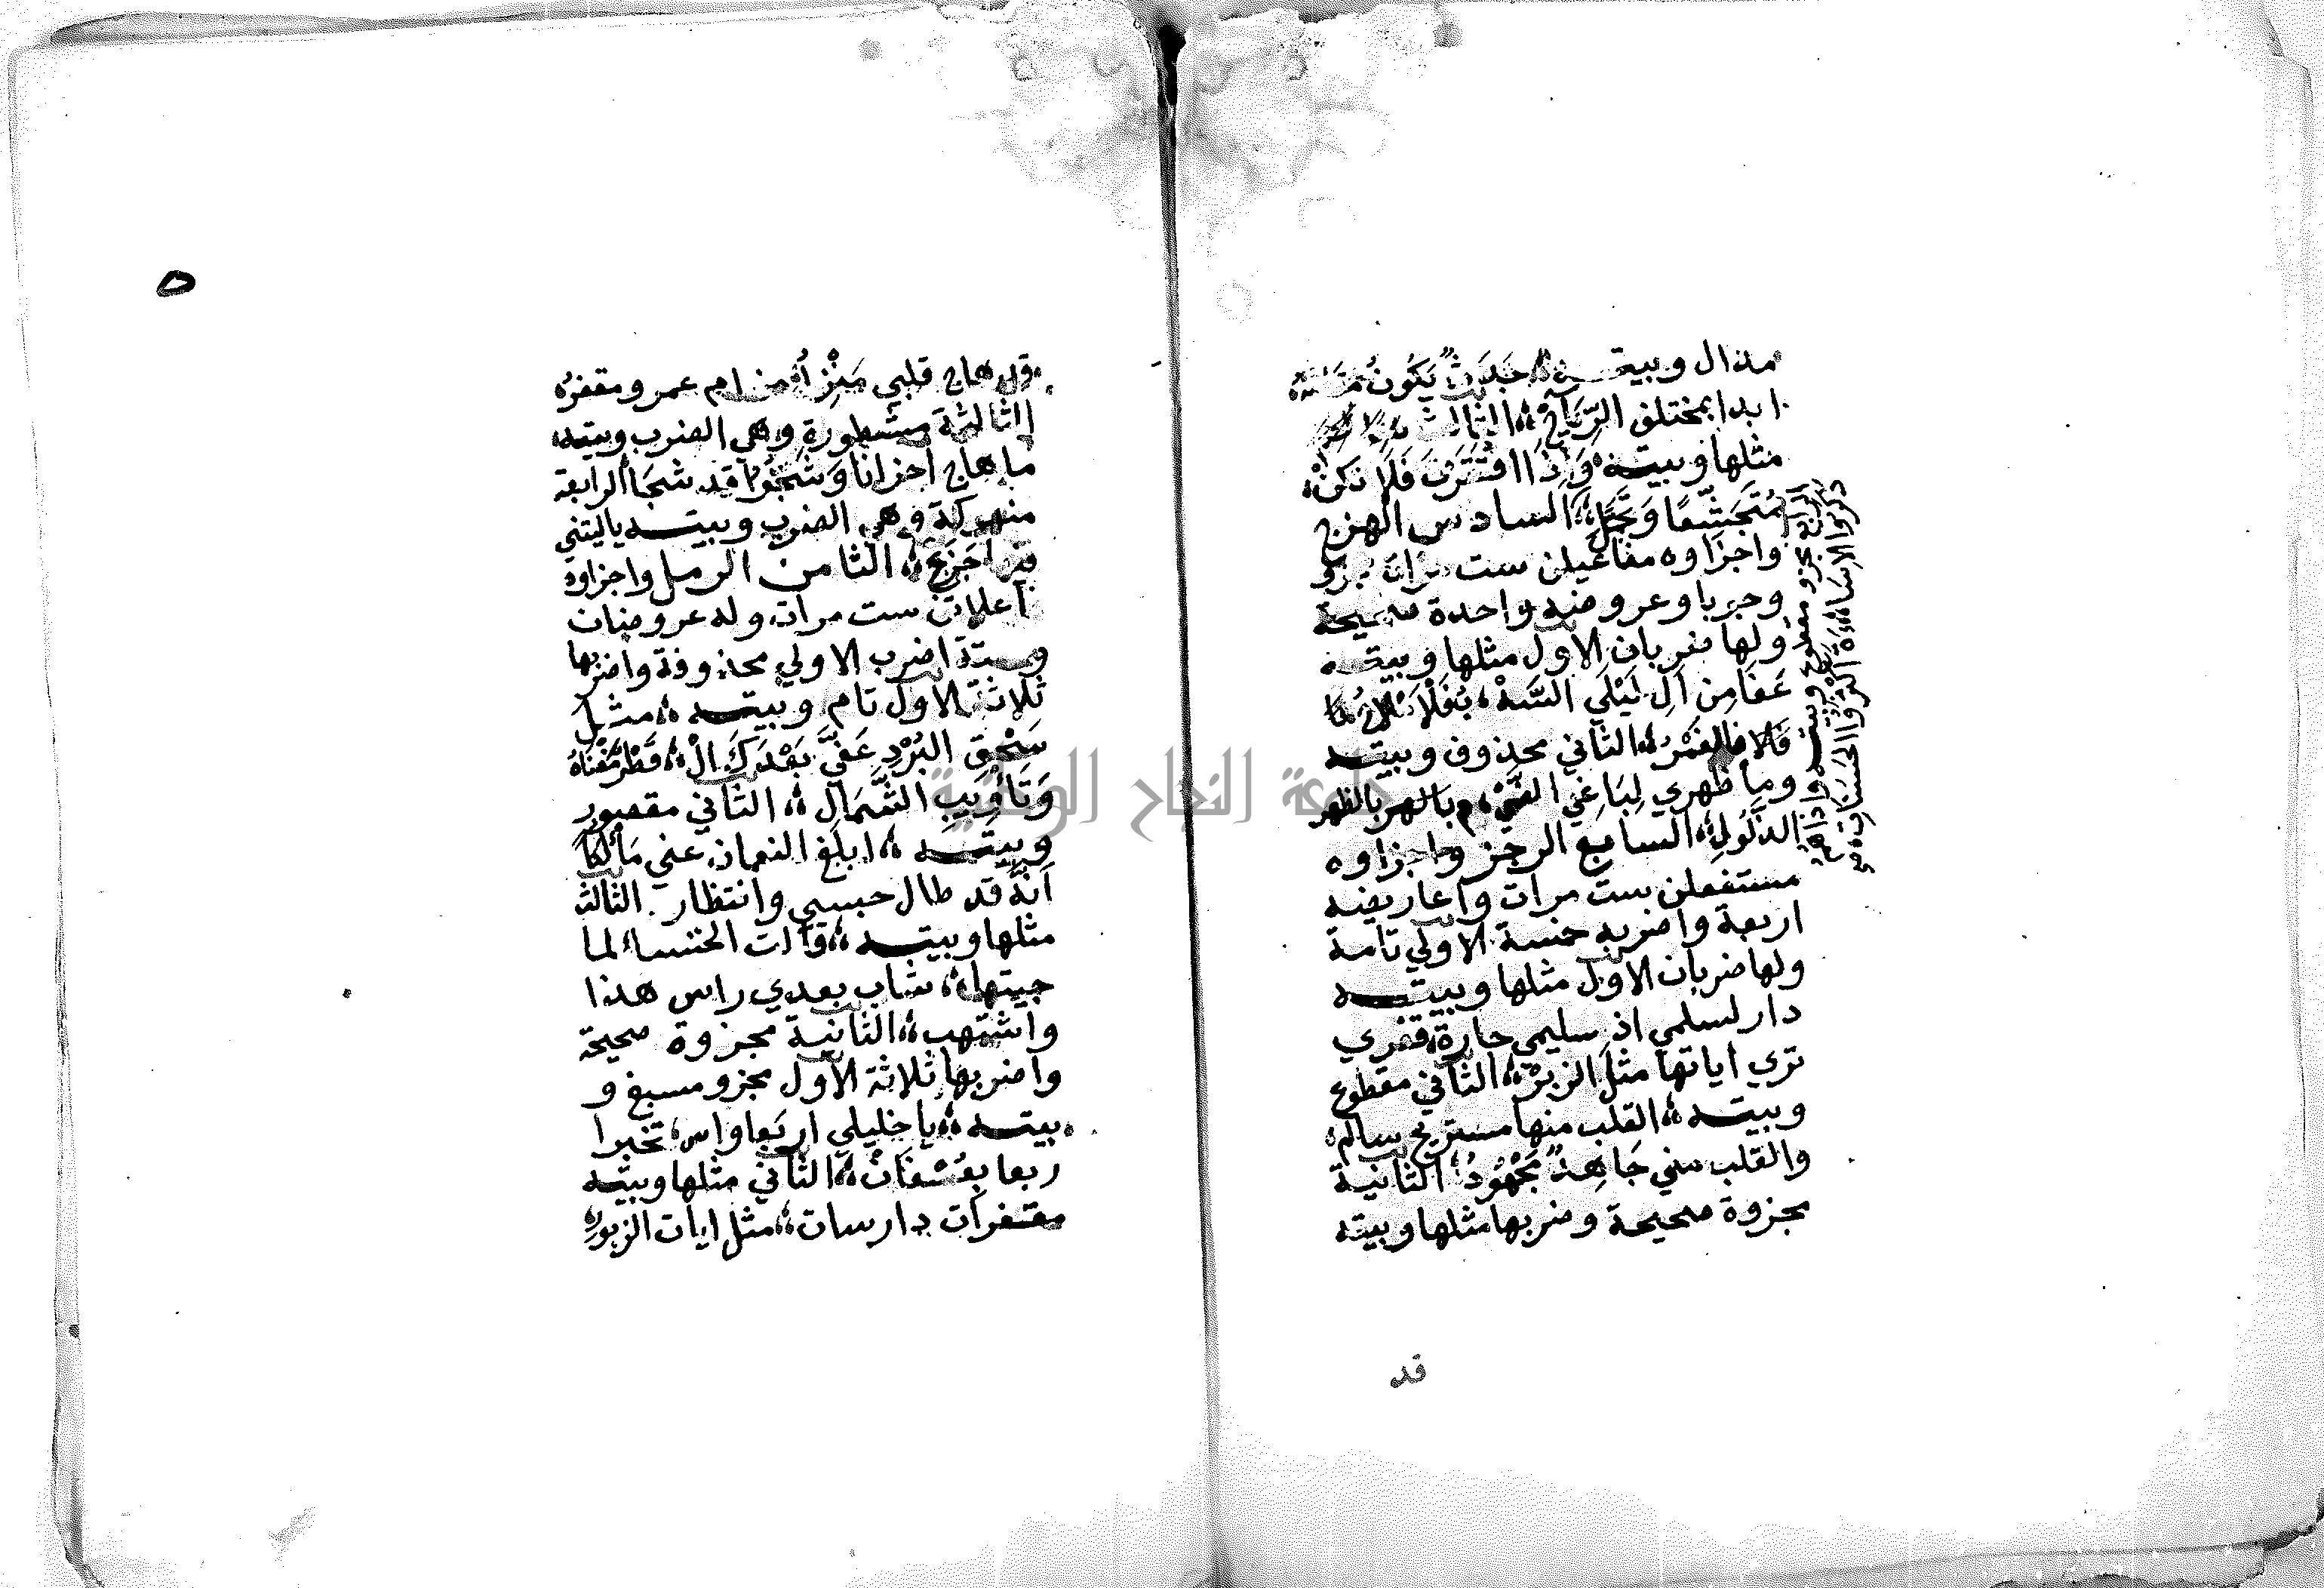 مذال وبيته جَدَثٌ يَكُونُ مُقَامُهُ
ابدا بمختلف الرِّيَاحْ الثالث
مثلها وبيته وَإِذَا افْتَقَرْتَ فَلَا تَكُنْ
مُتَجَشِّعًا وَتَجَمَّلِ السادس الهزج
واجزاوه مفاعيلن ست مرات مجزو
وجوبا وعروضه واحدة صحيحة
ولها ضربان الاول مثلها وبيته
عَفَا مِن آلِ لَيْلَى السَّهْ بُ فَلْامْلَاحُ
فالغَمْرُ الثاني محذوف وبيته
وما ظهري لِبَاغِي الضَّيْ م بالظهر
الذَّلُولِ السابع الرجز واجزاوه
مستفعلن ست مرات واعاريضه
اربعة واضربه خمسة الاولي تامة
ولها ضربان الاول مثلها وبيته
دار لسلمي اذ سليمي جارة قفري
تري اياتها مثل الزبرْ الثاني مقطوع
وبيته القلب منها مستريح سالم
والقلب مني جَاهِدٌ مَجْهُودُ الثانية
مجزوة صحيحة وضربها مثلها وبيته
الرابع مجزو مقطوع وبيته واذا هم
ذكروا الاساءة اكثروا الحسنات
قد
٥
قد هاج قلبي مَنْزِلٌ من ام عمرو مقفرُ
الثالثة مشطورة وهي الضرب وبيته
ما هاج احزانا وَشَجْوًا قد شَجَا الرابعة
منهوكة وهي الضرب وبيته ياليتني
فيها جَذَعْ الثامن الرمل واجزاوه
فاعلاتن ست مرات وله عروضان
وستة اضرب الاولي محذوفة واضربها
ثلاثة الاول تام وبيته مثل
سَحْقِ البُرْدِ عَفَّى بَعْدَكَ الْ قَطْرُ مَغْنَاهُ
وَتَأْوِيبِ الشَّمَالِ الثاني مقصور
وبيته ابلغ النعمان عني مَأْلُكًا
انّهُ قد طال حبسي وانتظار الثالث
مثلها وبيته قالت الخنساء لما
جيتها شاب بعدي راس هذا
واشتهب الثانية مجزوة صحيحة
واضربها ثلاثة الاول مجزو مسبغ و
بيته يا خليلي اربعا واس تخبرا
ربعا بِعُسْفَانْ الثاني مثلها وبيته
مقفرات دارسات مثل ايات الزبورِ
جامعة النجاح الوطنية